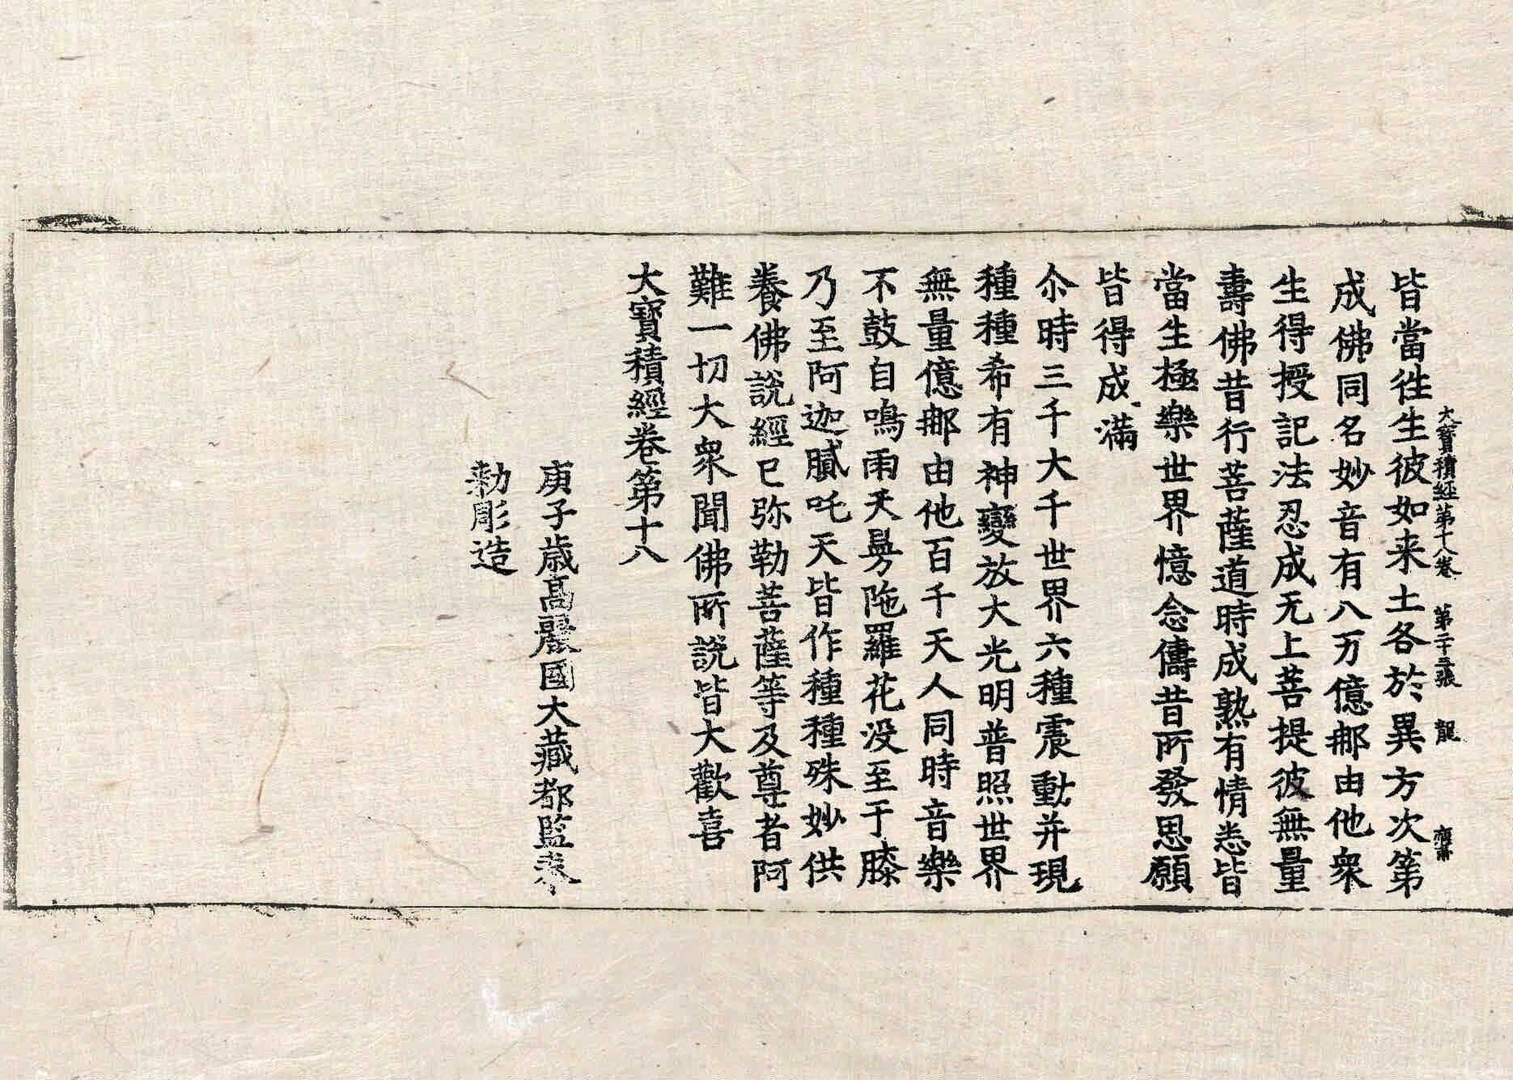 大寶積經第十八卷　第二十五張　龍
皆當往生彼如来土各於異方次第
成佛同名妙音有八万億郍由他衆
生得授記法忍成无上菩提彼無量
壽佛昔行菩薩道時成熟有情悉皆
當生極樂世界憶念儔昔所發思願
皆得成滿
尒時三千大千世界六種震動并現
種種希有神變放大光明普照世界
無量億郍由他百千天人同時音樂
不鼓自鳴雨天曼陁羅花没至于膝
乃至阿迦膩吒天皆作種種殊妙供
養佛說經已弥勒菩薩等及尊者阿
難一切大衆聞佛所說皆大歡喜
大寶積經卷第十八
庚子歳髙麗國大藏都監奉
勅彫造